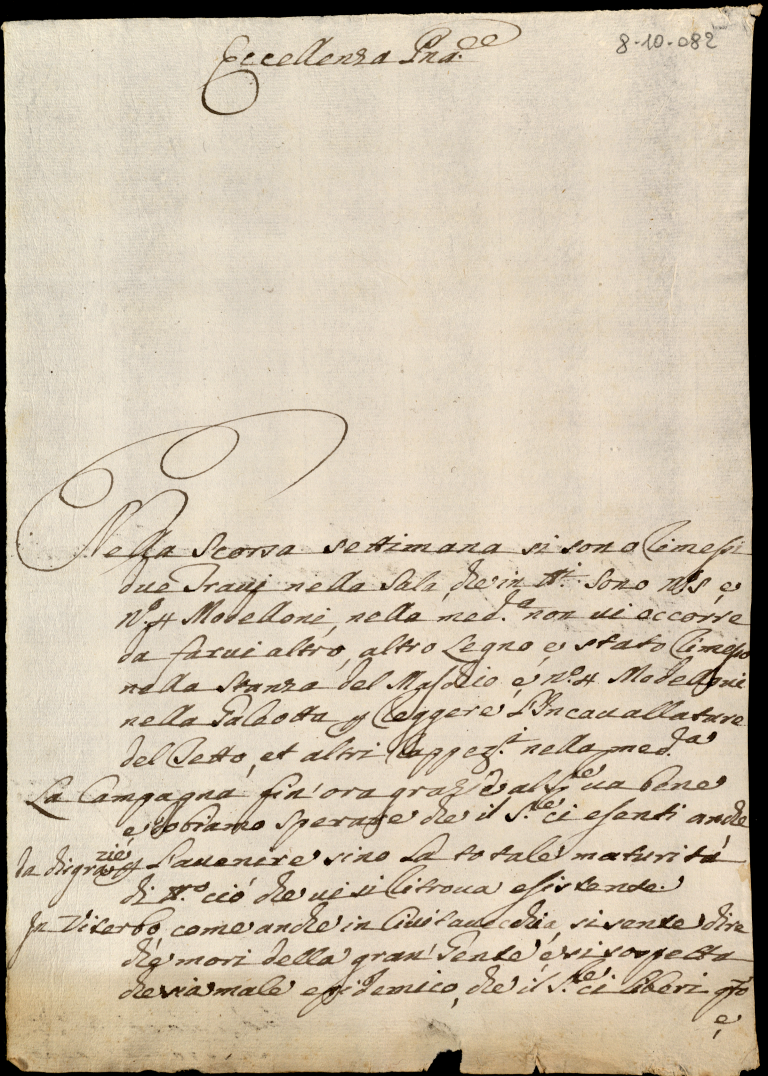 8-10-082
Eccellenza Pna.
Nella Scorsa settimana si sono Rimessi
due Travi nella Sala, che in tt.i sono n.o 5, e
n.o 4 Modelloni, nella med.a non vi occorre
da farvi altro, altro Legno e stato Rimesso
nella Stanza del Maschio, é n.o 4 Modelloni
nella Galeotta p Reggere l'Incavallature
del Tetto, et altri Rappez.ti nella med.a
La Campagna fin'ora grazie al S.re va bene
e dobiamo Sperare che il S.re ci esenti anche
da disgrazzie p l'avenire sino La totale maturitá
di tt.o ció che vi si Ritrova essistente.
In Viterbo, come anche in Civitavecchia, si sente dire
che mori della gran Gente é si sospetta
che sia male epidemico, che il S.re ci liberi
e